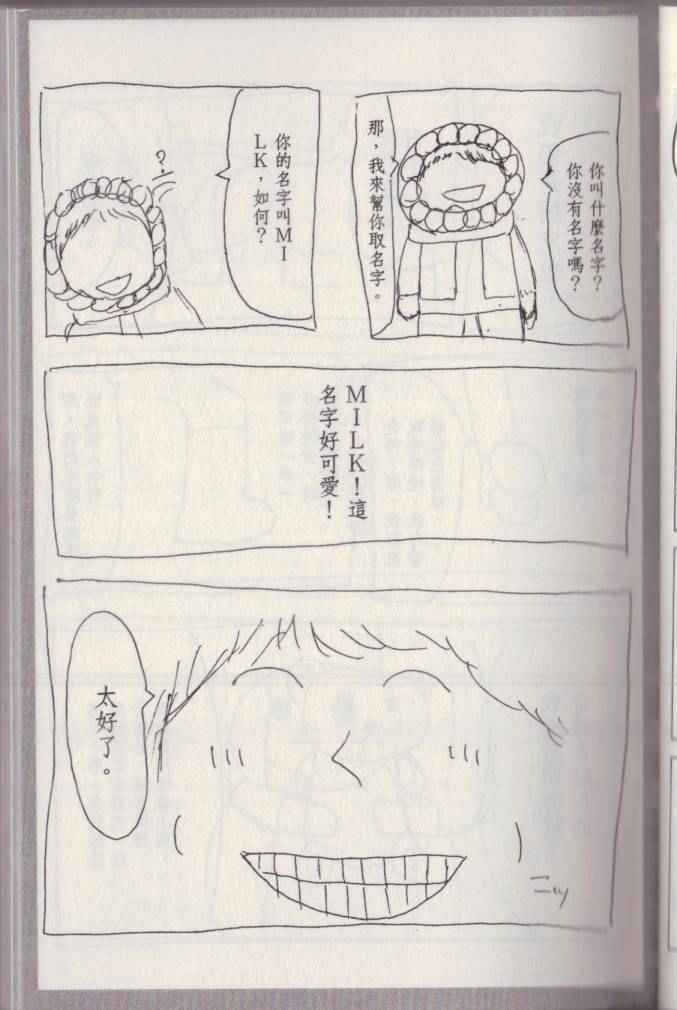 你叫什麼名字?
你沒有名字嗎?
那,我來幫你取名字。
你的名字叫MI
LK,如何?
?
MILK!這
名字好可愛!
太好了。
ニッ